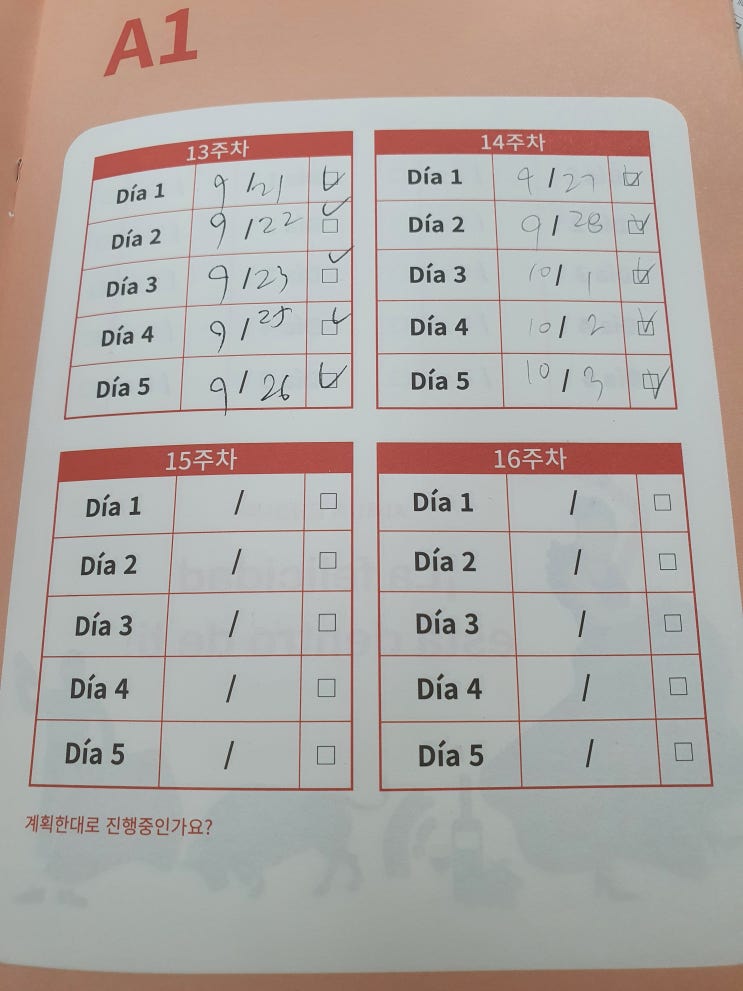 A1
13주차
Día 1 9/21
Día 2 9/22
Día 3 9/23
Día 4 9/25
Día 5 9/26
14주차
Día 1 9/27
Día 2 9/28
Día 3 10/1
Día 4 10/2
Día 5 10/3
15주차
Día 1 /
Día 2 /
Día 3 /
Día 4 /
Día 5 /
16주차
Día 1 /
Día 2 /
Día 3 /
Día 4 /
Día 5 /
계획한대로 진행중인가요?